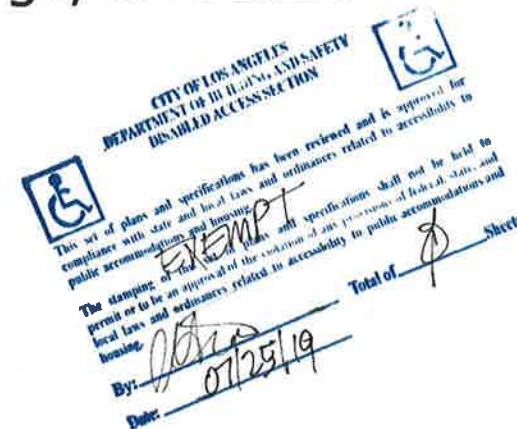 CITY OF LOS ANGELES
DEPARTMENT OF BUILDING AND SAFETY
DISABLED ACCESS SECTION
This set of plans and specifications has been reviewed and is approved for
compliance with state and local laws and ordinances related to accessibility to
public accommodations and housing.
EXEMPT
The stamping of these plans and specifications shall not be held to
permit or to be an approval of the violation of any provisions of federal, state, and
local laws and ordinances related to accessibility to public accommodations and
housing.
Total of Sheets
By:
Date: 07/25/19